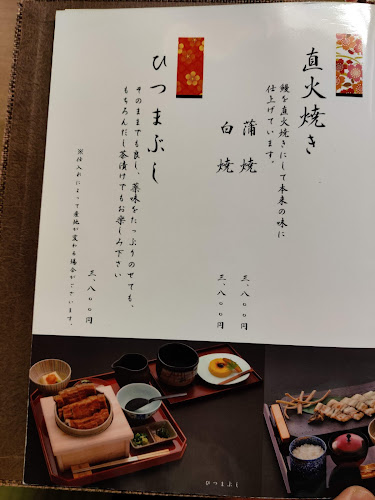 直火焼き
鰻を直火焼きにして本来の味に
仕上げています。
蒲焼 三、八〇〇円
白焼 三、八〇〇円
ひつまぶし
そのままでも良し、薬味をたっぷりのせても、
もちろんだし茶漬けでもお楽しみ下さい
三、八〇〇円
※仕入れによって産地が変わる場合がございます。
ひつまぶし